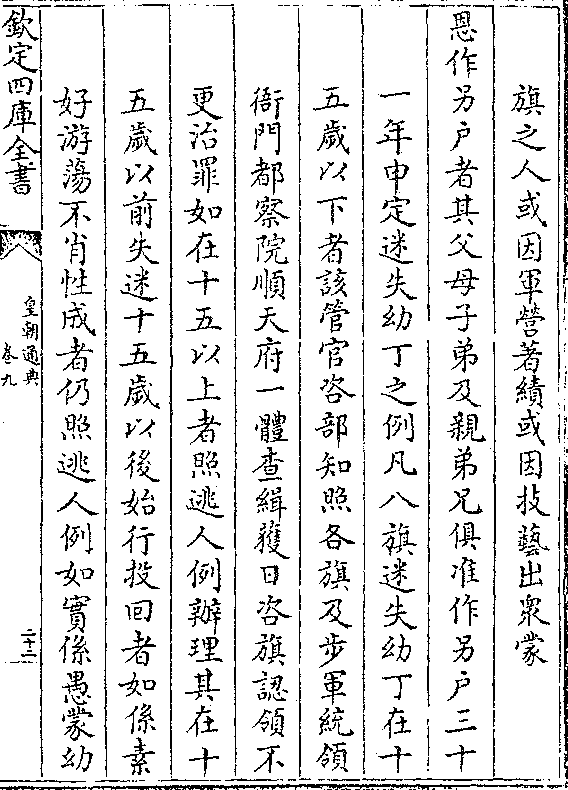 旗之人或因軍營著績或因技藝出衆蒙
恩作另户者其父母子弟及親弟兄俱准作另户三十
一年申定迷失幼丁之例凡八旗迷失幼丁在十
五歲以下者該管官咨部知照各旗及步軍統領
衙門都察院順天府一體查緝獲日咨旗認領不
更治罪如在十五以上者照逃人例辦理其在十
五歲以前失迷十五歲以後始行投回者如係素
好游蕩不肖性成者仍照逃人例如實係愚蒙幼
欽定四庫全書
皇朝通典
卷九
二十二